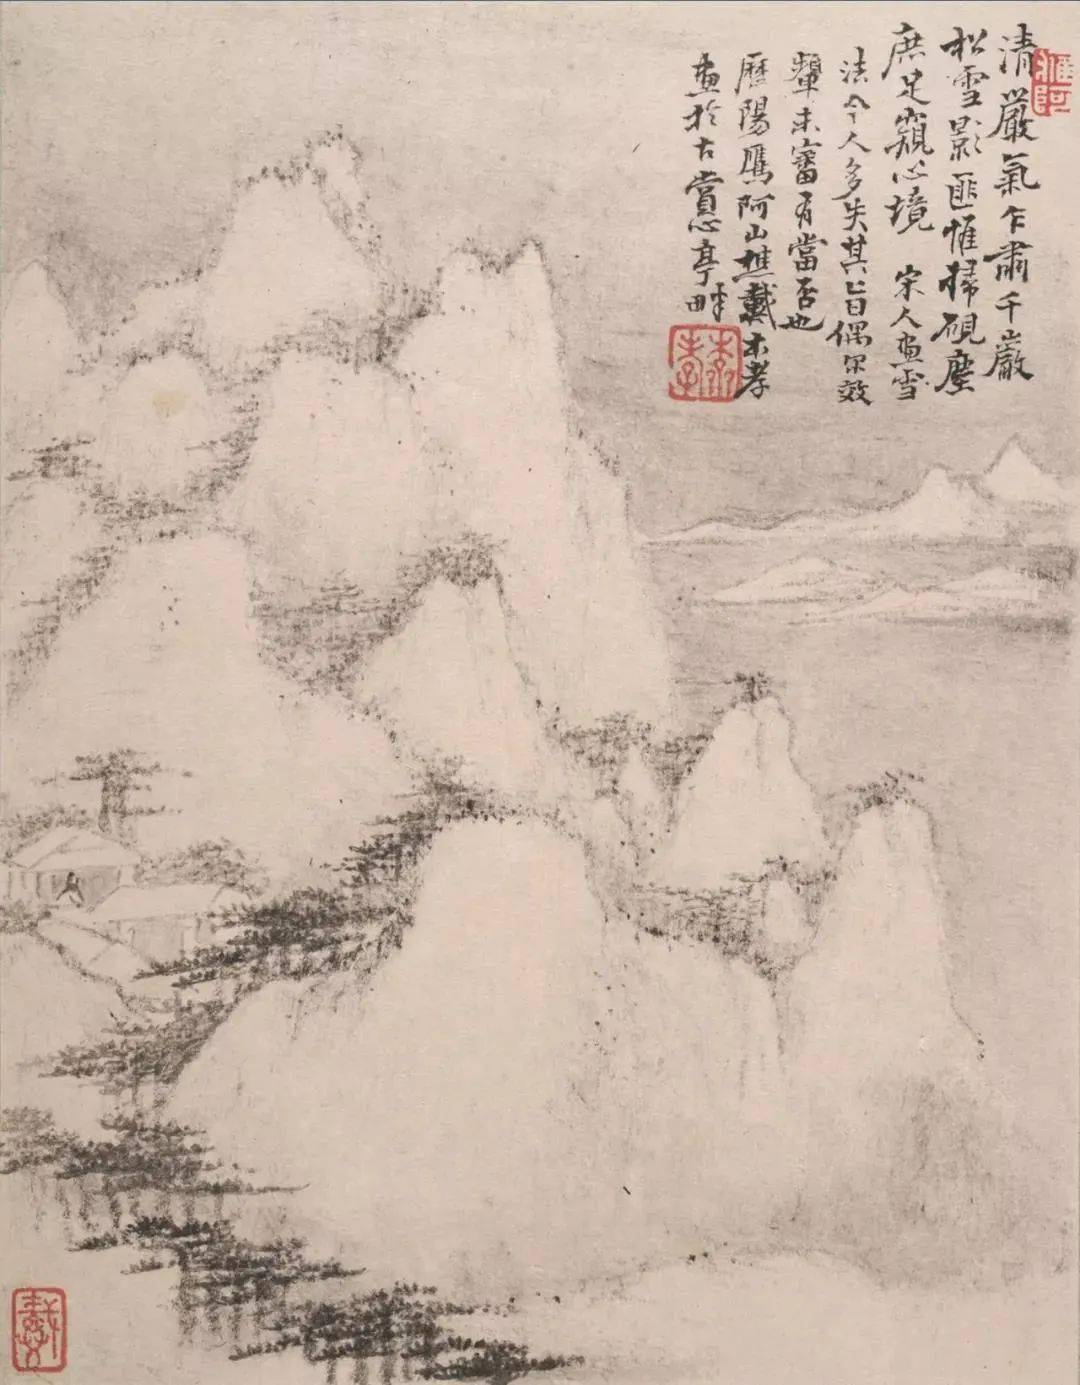 清嚴氣乍肅千巖
松雪影匪惟掃硯塵
庶足窺心境 宋人畫雪
法今人多失其旨偶尔效
顰未審有當否也
歷陽鷹阿山樵戴本孝
畫於古賞心亭畔
本孝